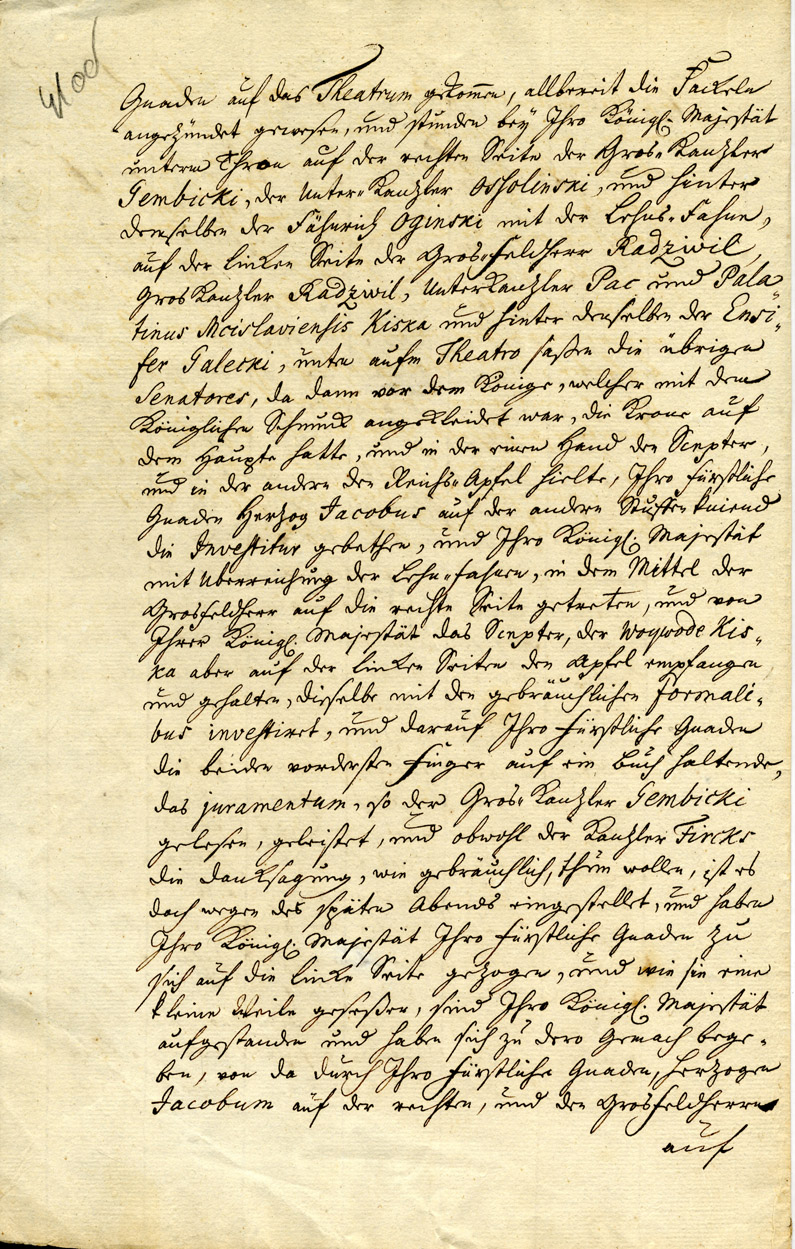 Gnaden auf das Theatrum gekommen, allbereit die Fackeln
angezündet gewesen, und stunden bey Ihro Königl. Majestät
unterm Thron auf der rechten Seite der Gros-Kanzler
Gembicki, der Unter-Kanzler Ossolinski, und hinter
demselben der Fähnrich Oginski mit der Lehns-Fahne,
auf der linken Seite der Gros-Feldherr Radziwil,
Gros Kanzler Radziwil, Unterkanzler Pac und Pala-
tinus Mcislaviensis Kiska und hinter denselben der Ensi-
fer Galecki, unten aufm Theatro saßen die übrigen
Senatores, da dann vor dem Könige, welcher mit dem
Königlichen Schmuck angekleidet war, die Krone auf
dem Haupte hatte, und in der einen Hand den Scepter,
und in der andern den Reichs-Apfel hielte, Ihro Fürstliche
Gnaden Herzog Jacobus auf der andern Stuffen kniend
die Investitur gebethen, und Ihro Königl. Majestät
mit Überreichung der Lehn-Fahnen, in dem Mittel der
Grosfeldherr auf die rechte Seite getreten, und von
Ihrer Königl. Majestät das Scepter, der Woywode Kis-
ka aber auf der linken Seiten den Apfel empfangen
und gehalten, dieselbe mit den gebräuchlichen formali-
bus investiret, und darauf Ihro Fürstliche Gnaden
die beiden vordersten Finger auf ein Buch haltende,
das juramentum, so der Gros-Kanzler Gembicki
gelesen, geleistet, und obwohl der Kanzler Fircks
die Danksagung, wie gebräuchlich, thun wollen, ist es
doch wegen des späten Abends eingestellet, und haben
Ihro Königl. Majestät Ihro Fürstliche Gnaden zu
sich auf die linke Seite gezogen, und wie sie eine
kleine Weile geseßen, sind Ihro Königl. Majestät
aufgestanden und haben sich zu dero Gemach bege-
ben, von da durch Ihro Fürstliche Gnaden, Herzogen
Jacobum auf der rechten, und den Grosfeldherrn
auf